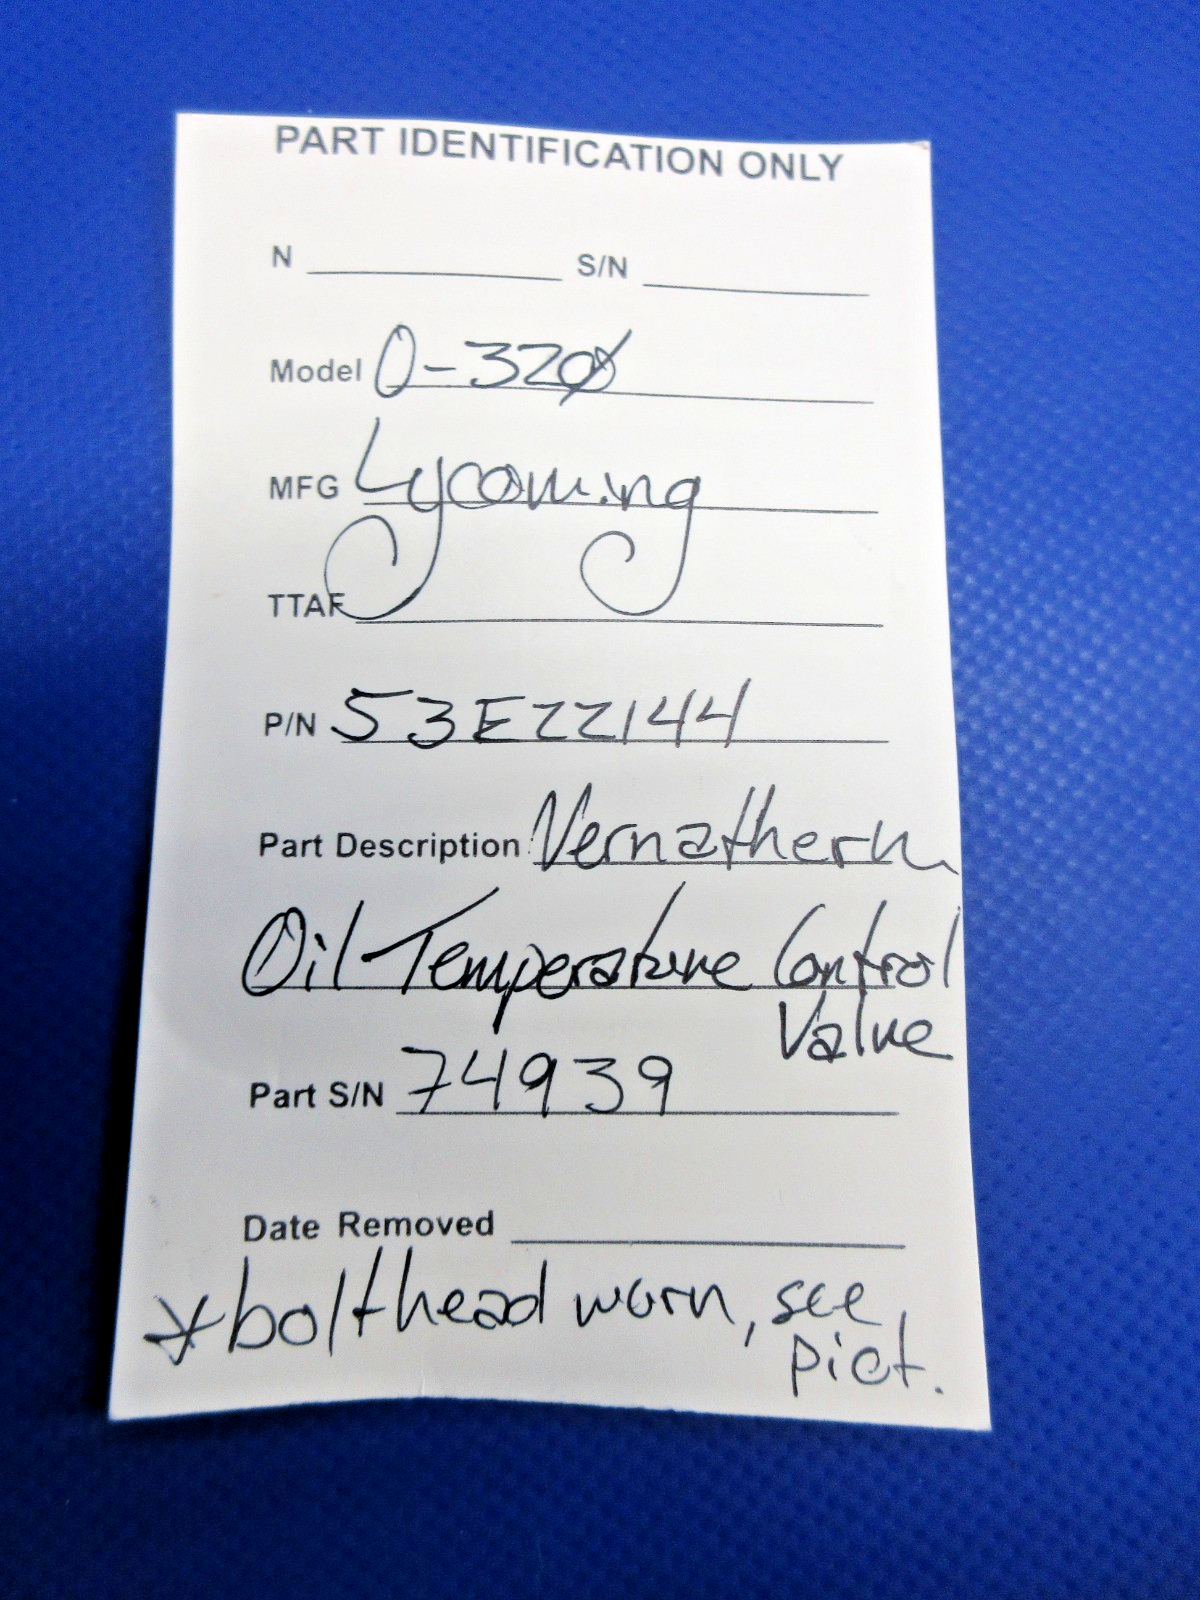 PART IDENTIFICATION ONLY
N S/N
Model O-320
MFG Lycoming
TTAF
P/N 53E22144
Part Description Vernatherm
Oil Temperature Control
Valve
Part S/N 74939
Date Removed
*bolthead worn, see
pict.